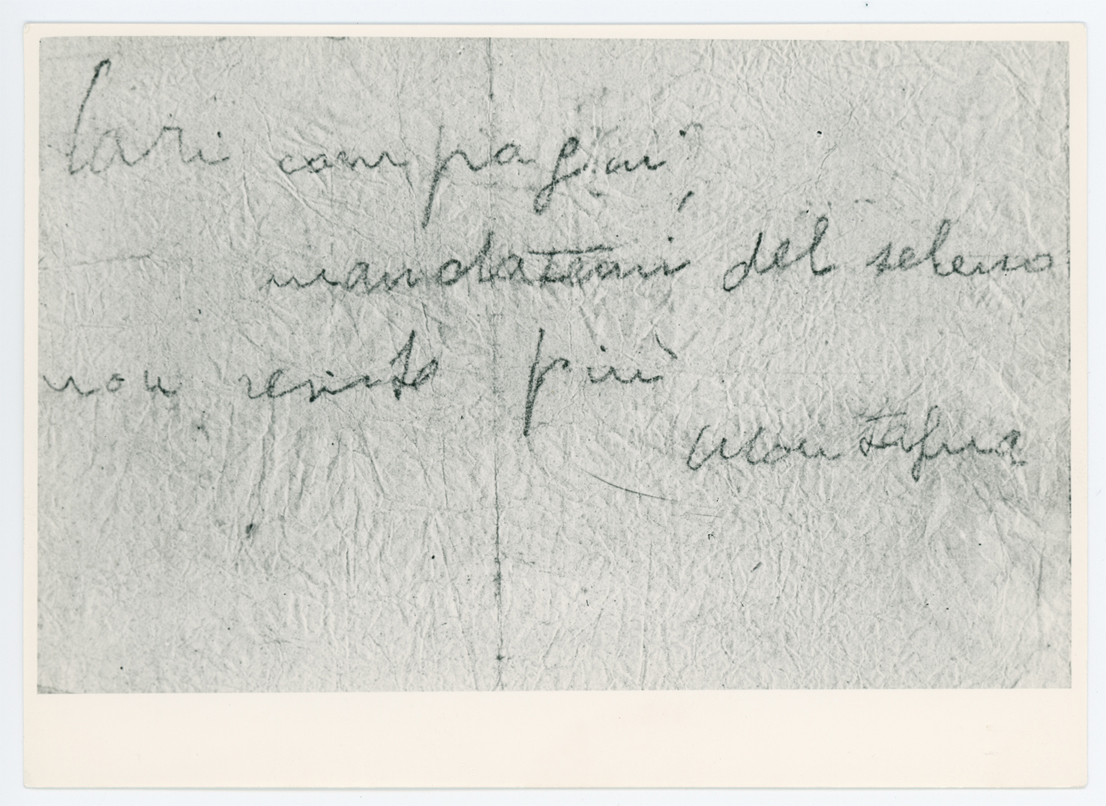 Cari compagni,
mandatemi del veleno
non resisto più